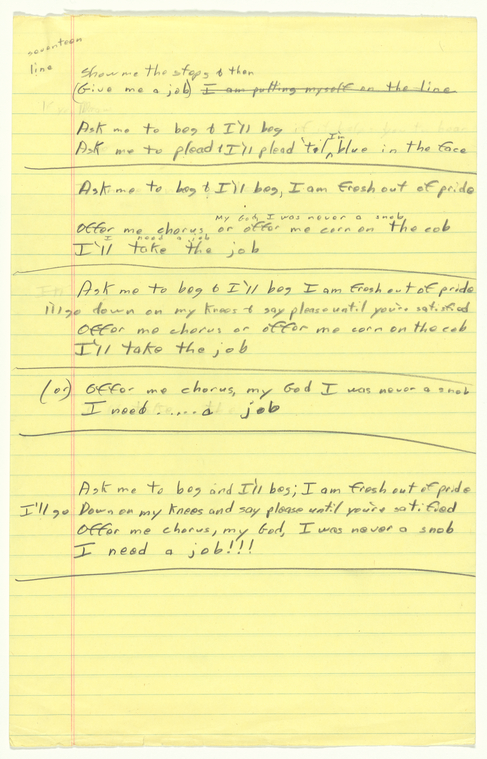 seventeen
line
Show me the steps & then
(Give me a job) I am putting myself on the line
Ask me to beg & I'll beg
Ask me to plead & I'll plead 'til I'm blue in the face
Ask me to beg & I'll beg, I am fresh out of pride
My God, I was never a snob
Offer me chorus, or offer me corn on the cob
I need a job
I'll take the job
Ask me to beg & I'll beg I am fresh out of pride
I'll go down on my knees & say please until you're satisfied
Offer me chorus or offer me corn on the cob
I'll take the job
(or) Offer me chorus, my God I was never a snob
I need ..... a job
Ask me to beg and I'll beg; I am fresh out of pride
I'll go Down on my knees and say please until you're satified
Offer me chorus, my God, I was never a snob
I need a job!!!